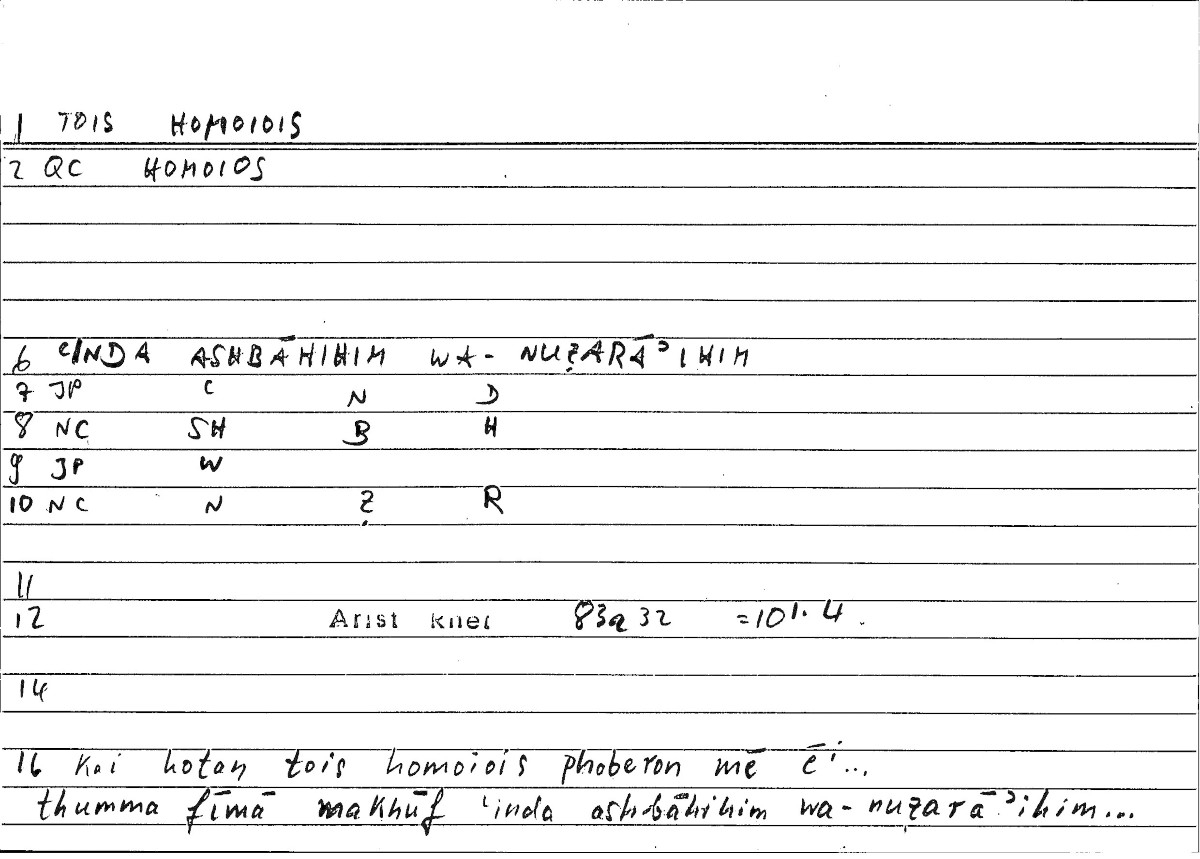 1 TOIS HOMOIOIS
2 QC HOMOIOS
6 ʿINDA ASHBĀHIHIM WA- NUẒARĀʾIHIM
7 JP ʿ N D
8 NC SH B H
9 JP W
10 NC N Ẓ R
11
12 Arist Rhet 83a32 =101.4.
14
16 Kai hotan tois homoiois phoberon mē ēi...
thumma fīmā makhūf ʿinda ashbāhihim wa-nuẓarāʾihim...